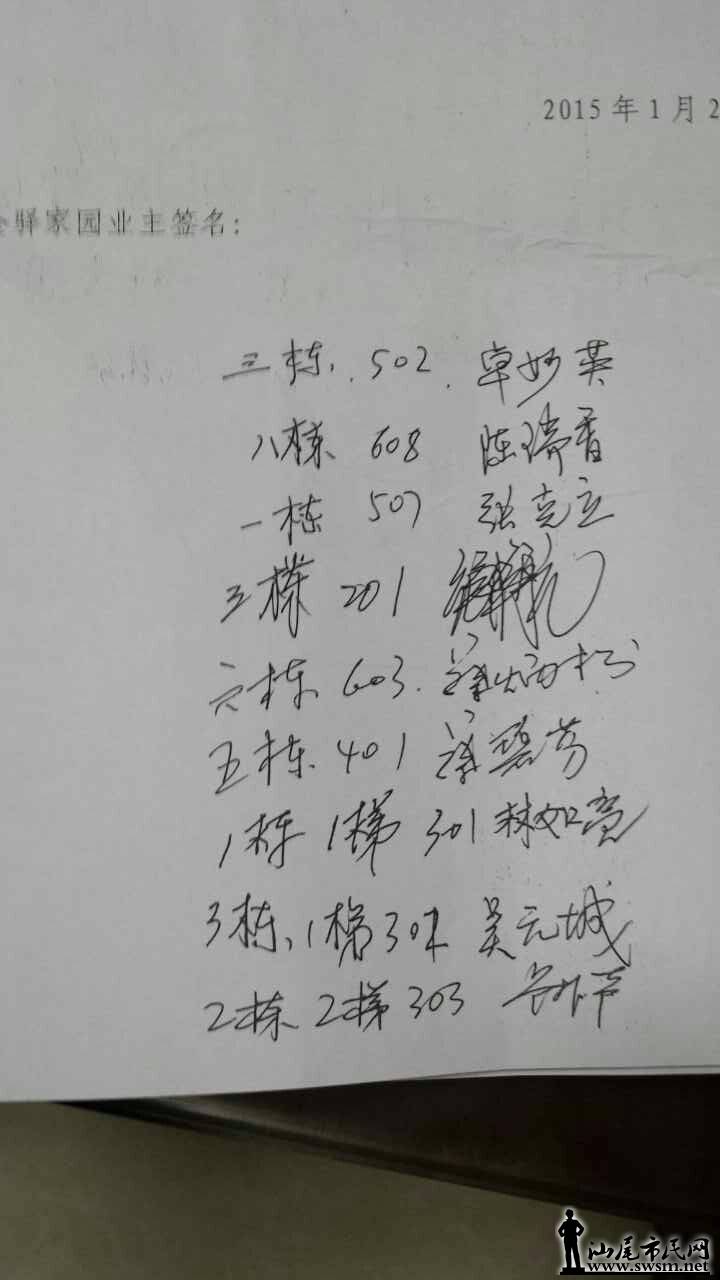 2015年1月2
驿家园业主签名:
三栋. 502. 卓妙英
八栋 608 陈瑞香
一栋 507 张克立
三栋 201
六栋 603.
五栋. 401 碧芳
1栋 1梯 301 林如亮
3栋, 1梯302 吴元城
2栋 2梯303
汕尾市民网
www.swsm.net